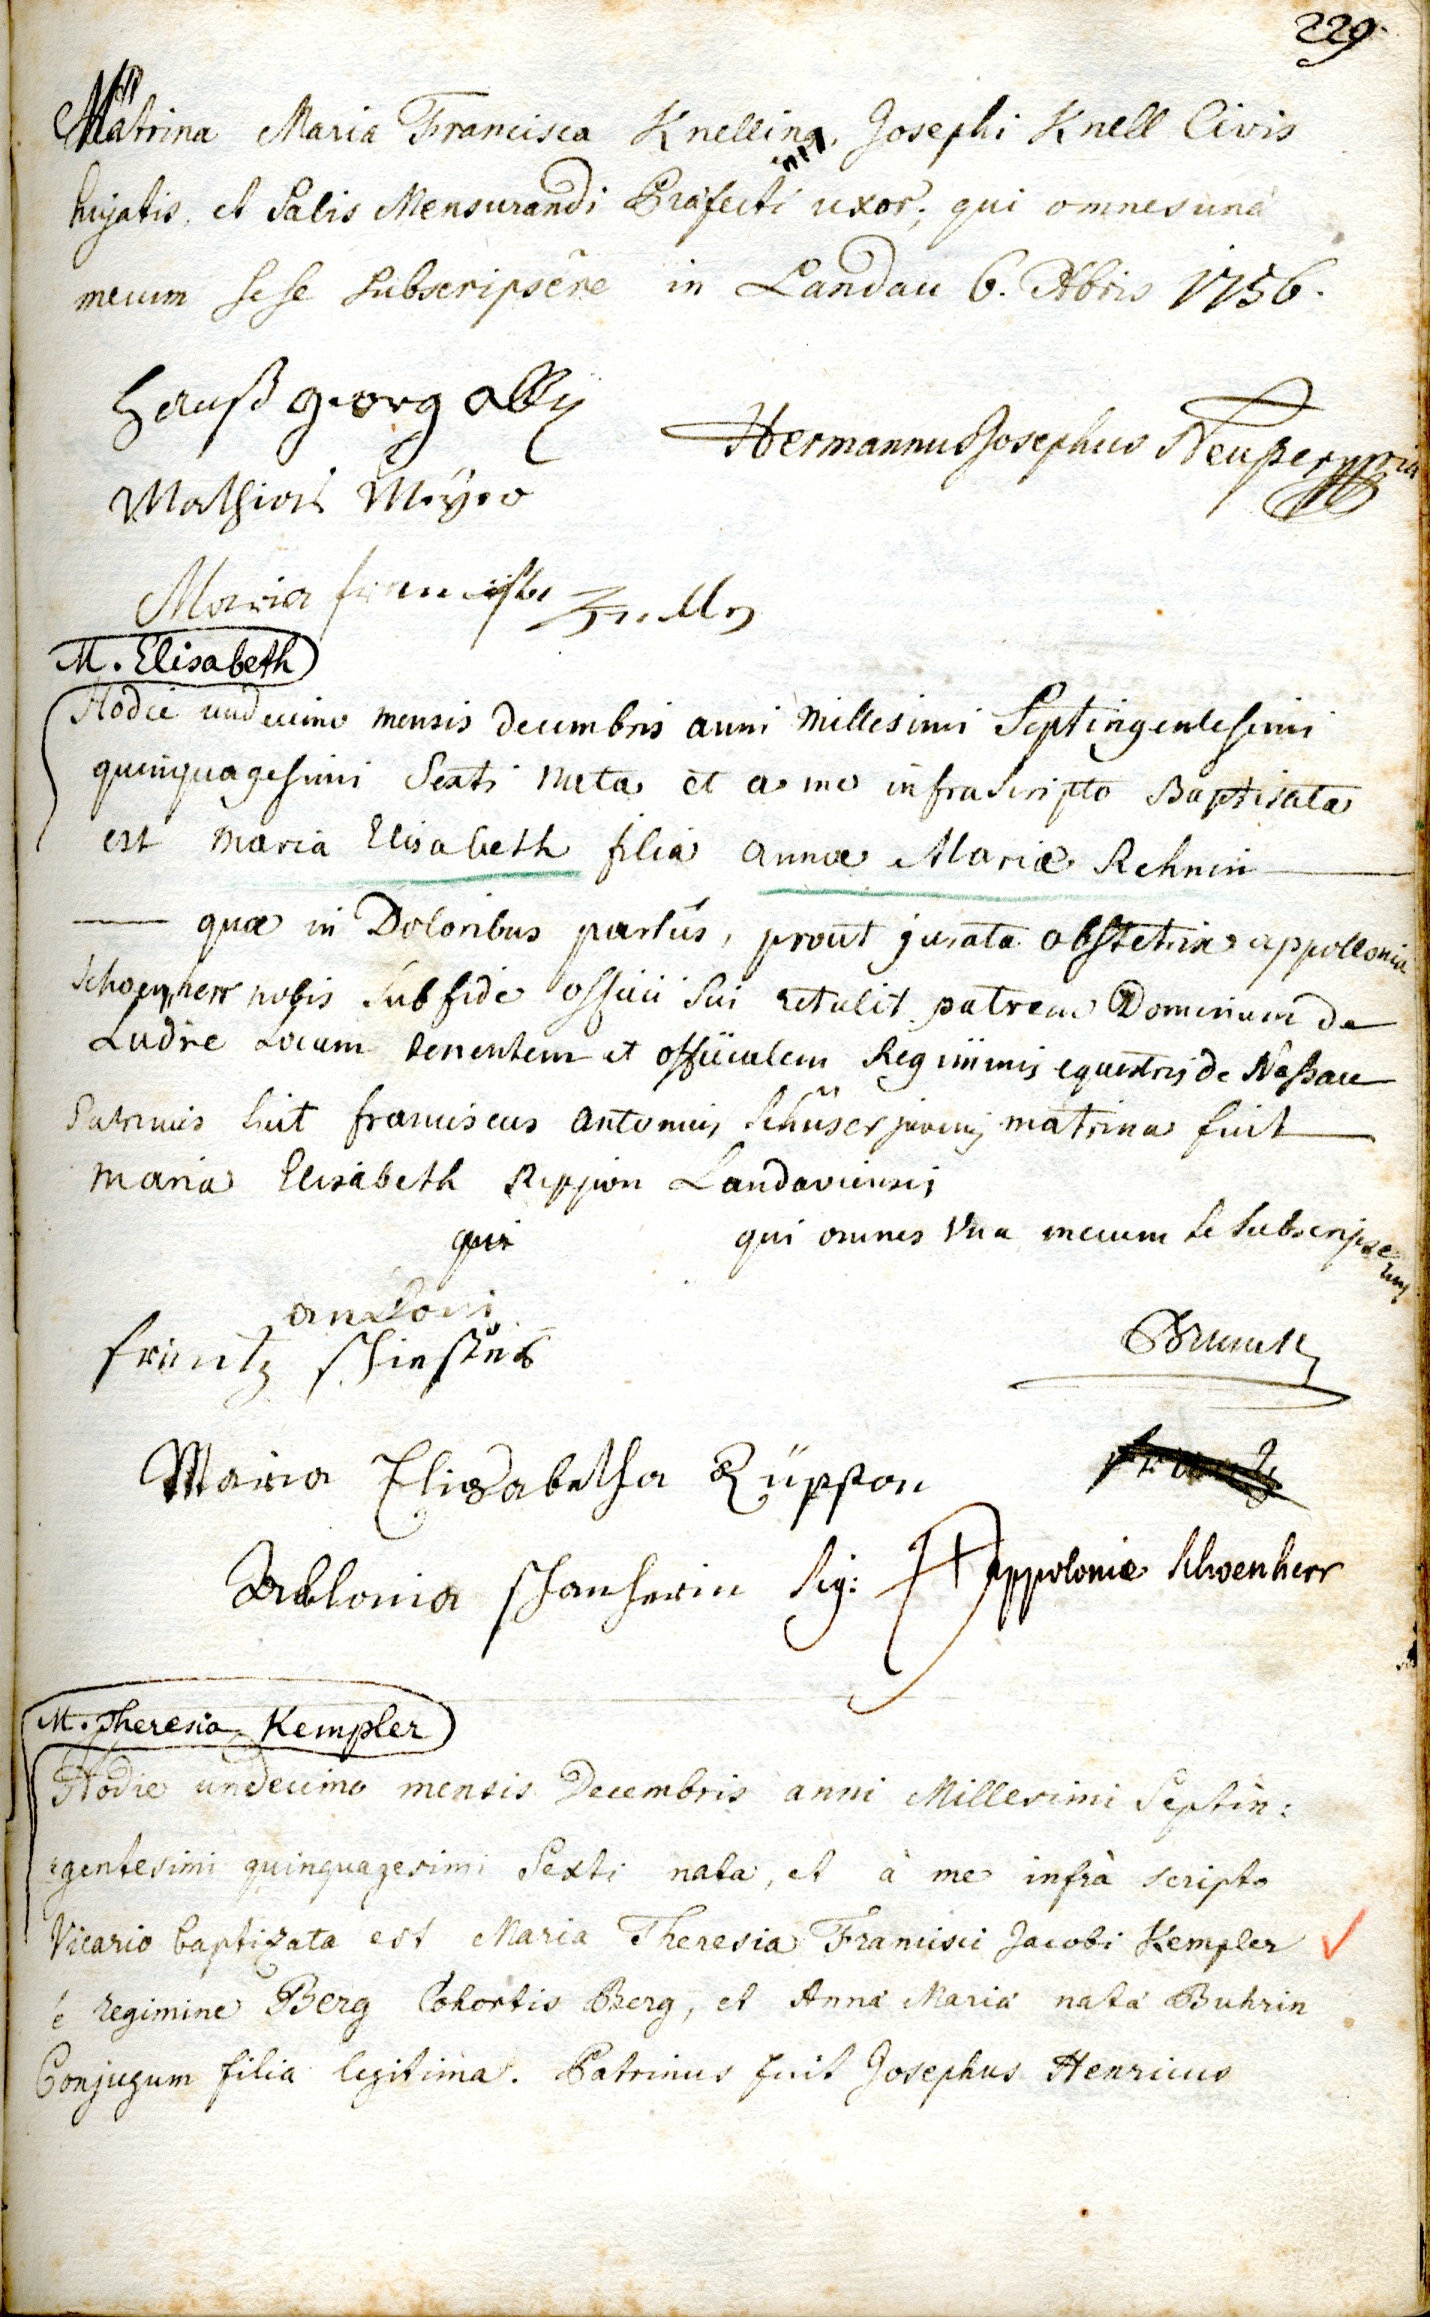 229.
Matrina Maria Francisca Knellina, Josephi Knell Civis
hujatis, et Salis Mensurandi Præfecti uxor; qui omnes unà
mecum sese subscripsêre in Landau 6. Xbris 1756.
Hanß georg
Hermannus Josephus
Mathias Meyer
Maria francisca
M. Elisabeth
Hodie undecimo mensis decembris anni Millesimi Septingentesimi
quinquagesimi Sexti nata et a me infrascripto Baptisata
est maria Elisabeth filia annæ Mariæ Rehnin
quæ in Doloribus partûs, prout jurata obstetrix appollonia
schoenherr nobis sub fide officii sui retulit patrem Dominum de
Ludre Locum tenentem et officialem Regiminis equestris de Naßau
Patrinus fuit franciscus antonius schüser juvenis matrina fuit
maria Elisabeth Reppion Landaviensis
qui qui omnes una mecum se subscripserunt
andoni
frantz
Maria Elisabetha Rüppion
frantz
Ablonia schanherin sig: appoloniæ schoenherr
M. Theresia Kempler
Hodie undecimo mensis Decembris anni Millesimi Septin:
:gentesimi quinquagesimi Sexti nata, et à me infrà scripto
Vicario baptizata est Maria Theresia Francisci Jacobi Kempler
è regimine Berg Cohortis Berg, et Anna Maria nata Buhrin
Conjugum filia legitima. Patrinus fuit Josephus Henricus